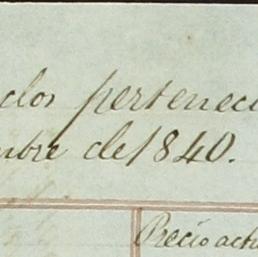 dos perteneci
mbre de 1840.
Precio actu